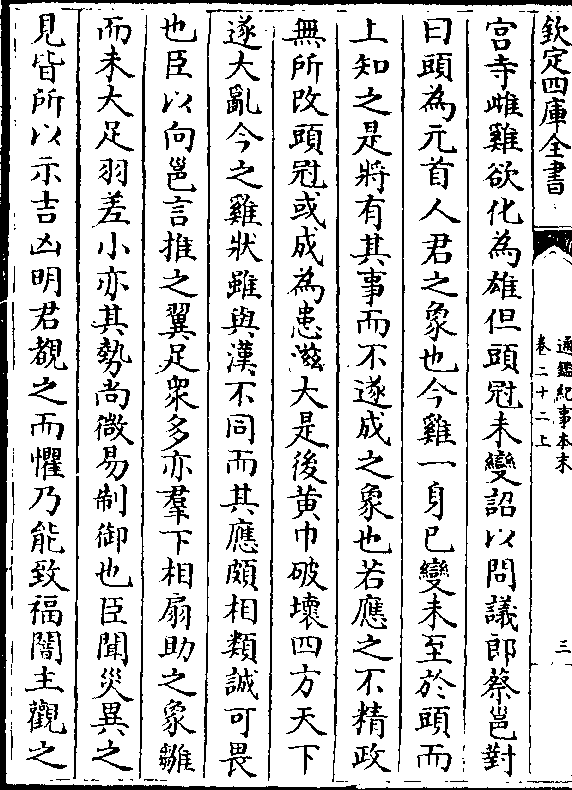 欽定四庫全書
通鑑紀事本末
卷二十二上
三
宫寺雌雞欲化為雄但頭冠未變詔以問議郎蔡邕對
曰頭為元首人君之象也今雞一身已變未至於頭而
上知之是將有其事而不遂成之象也若應之不精政
無所改頭冠或成為患滋大是後黄巾破壞四方天下
遂大亂今之雞狀雖與漢不同而其應頗相類誠可畏
也臣以向邕言推之翼足衆多亦羣下相扇助之象雛
而未大足羽差小亦其勢尚微易制御也臣聞災異之
見皆所以示吉凶明君覩之而懼乃能致福闇主觀之